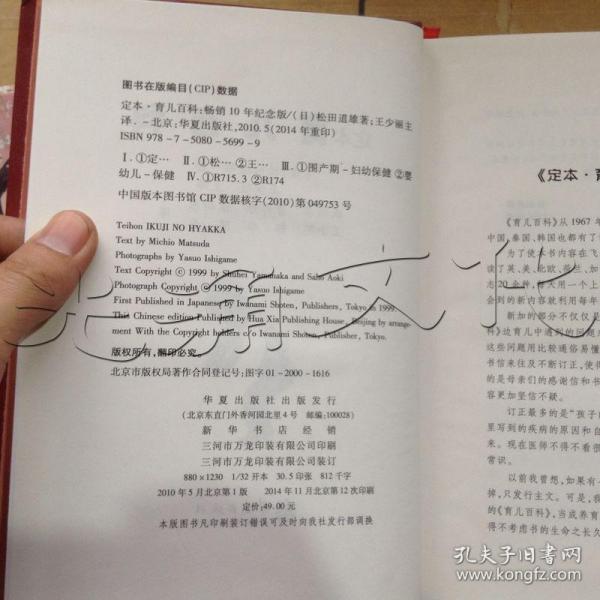 图书在版编目(CIP)数据
定本·育儿百科:畅销 10 年纪念版/(日)松田道雄著;王少丽主
译. -北京:华夏出版社,2010.5(2014 年重印)
ISBN 978-7-5080-5699-9
Ⅰ.①定… Ⅱ.①松… ②王… Ⅲ.①围产期-妇幼保健 ②婴
幼儿-保健 Ⅳ.①R715.3 ②R174
中国版本图书馆 CIP 数据核字(2010)第 049753 号
Teihon IKUJI NO HYAKKA
Text by Michio Matsuda
Photographs by Yasuo Ishigame
Text Copyright © 1999 by Shuhei Yamanaka and Saho Aoki
Photograph Copyright © 1999 by Yasuo Ishigame
First Published in Japanese by Iwanami Shoten, Publishers, Tokyo in 1999.
This Chinese edition Published by Hua Xia Publishing House, Beijing by arrange-
ment With the Copyright holders c/o Iwanami Shoten, Publisher, Tokyo.
版权所有,翻印必究。
北京市版权局著作合同登记号:图字 01-2000-1616
华夏出版社出版发行
(北京东直门外香河园北里 4 号 邮编:100028)
新华书店经销
三河市万龙印装有限公司印刷
三河市万龙印装有限公司装订
880×1230 1/32 开本 30.5 印张 812 千字
2010 年 5 月北京第 1 版 2014 年 11 月北京第 12 次印刷
定价:49.00 元
本版图书凡印刷装订错误可及时向我社发行部调换
《定本·育
《育儿百科》从 1967 年
中国、泰国、韩国也都有了
为了使本书内容在飞
读了英、美、北欧、荷兰、加
志 20 余种,每天用一个上
会到的新内容就利用每年
新加的部分不仅仅是
科》边育儿中遇到的问题
这些问题用比较通俗易懂
书信来往及不断订正,使得
的是母亲们的感谢信和书
容更加坚信不疑。
订正最多的是“孩子
里写到的疾病的原因和自
来。现在医师不得不看很
常识。
以前我曾想,如果有一
掉,只发行主文。可是,我
的《育儿百科》,当成养育
得不考虑书的生命之长久
孔夫子旧书网
www.kongfz.com